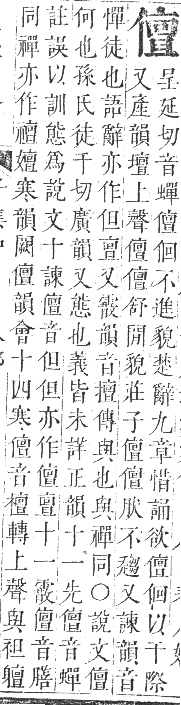 儃 呈延切音蟬儃佪不進貌楚辭九章惜誦欲儃佪以干際
又產韻壇上聲儃儃舒閒貌莊子儃儃肰不趨又諫韻音
憚徒也語辭亦作但亶又霰韻音擅傳與也與禪同○說文儃
何也孫氏徒干切廣韻又態也義皆未詳正韻十一先儃音蟬
註誤以訓態爲說文十諫儃音但但亦作儃亶十一霰儃音膳
同禪亦作襢嬗寒韻闕儃韻會十四寒儃音檀轉上聲與袒䄠